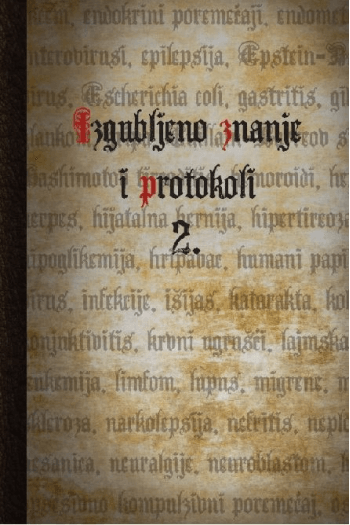 endokrini poremećaji, endomet
nterovirusi, epilepsija, Epstein-B
irus, Escherichia coli, gastritis, gl
Izgubljeno znanje
i protokoli
2.
Hashimoto
hemoroidi, he
herpes, hijatalna hernija, hipertireoza
hipoglikemija, hripavac, humani papi
irus, infekcije, išijas, katarakta, kol
konjunktivitis, krvni ugrušci, lajmska
leukemija, limfom, lupus, migrene, m
skleroza, narkolepsija, nefritis, neplo
nesanica, neuralgije, neuroblastom, h
opsesivno kompulzivni poremećaj, os